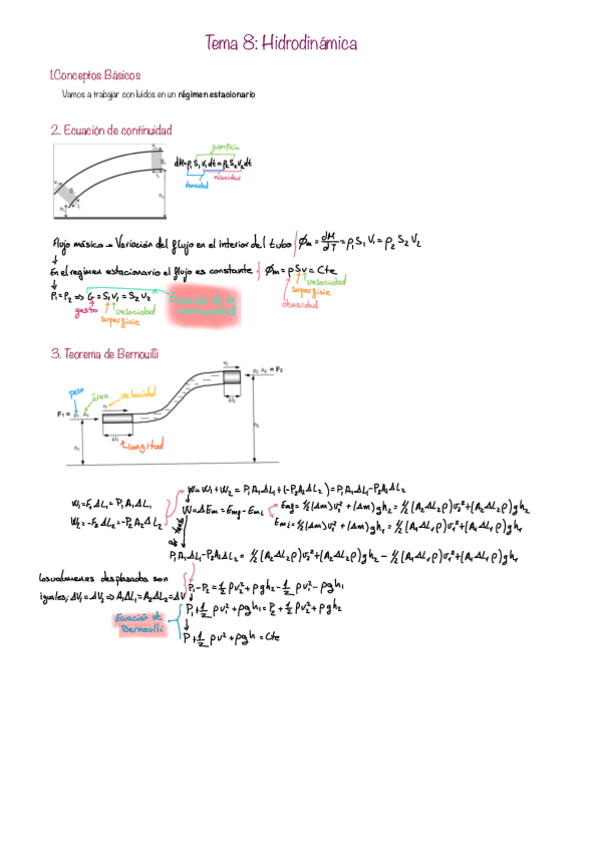 Tema 8: Hidrodinámica
1.Conceptos Básicos
Vamos a trabajar con luídos en un régimen estacionario
2. Ecuación de continuidad
superficie
dM=ρ₁S₁v₁dt=ρ₂S₂v₂dt
densidad velocidad
Flujo másico → Variación del flujo en el interior del tubo ϕm = dM/dT = ρ₁S₁V₁ = ρ₂S₂V₂
↓
En el regimen estacionario el flujo es constante ϕm = ρSv = Cte
velocidad
superficie
densidad
↓
ρ₁=ρ₂ ⇒ G = S₁V₁ = S₂V₂
gasto superficie velocidad
Ecuación de la continuidad
3. Teorema de Bernouilli
peso área velocidad
F₁ = p₁ A₁
p₂ A₂ = F₂
longitud
W=W₁+W₂ = P₁A₁ΔL₁+(-P₂A₂ΔL₂)=P₁A₁ΔL₁-P₂A₂ΔL₂
W₁=F₁ΔL₁=P₁A₁ΔL₁
W₂=-F₂ΔL₂=-P₂A₂ΔL₂
W=ΔEm=Emg-Emi
Emg=½(Δm)v₂²+(Δm)gh₂=½(A₂ΔL₂ρ)v₂²+(A₂ΔL₂ρ)gh₂
Emi=½(Δm)v₁²+(Δm)gh₁=½(A₁ΔL₁ρ)v₁²+(A₁ΔL₁ρ)gh₁
P₁A₁ΔL₁-P₂A₂ΔL₂ = ½(A₂ΔL₂ρ)v₂²+(A₂ΔL₂ρ)gh₂ - ½(A₁ΔL₁ρ)v₁²+(A₁ΔL₁ρ)gh₁
Los volumenes desplazados son
iguales; ΔV₁=ΔV₂ ⇒ A₁ΔL₁=A₂ΔL₂=ΔV
P₁-P₂=½ρv₂²+ρgh₂-½ρv₁²-ρgh₁
↓
Ecuación de
Bernoulli
P₁+½ρv₁²+ρgh₁=P₂+½ρv₂²+ρgh₂
↓
P+½ρv²+ρgh=Cte